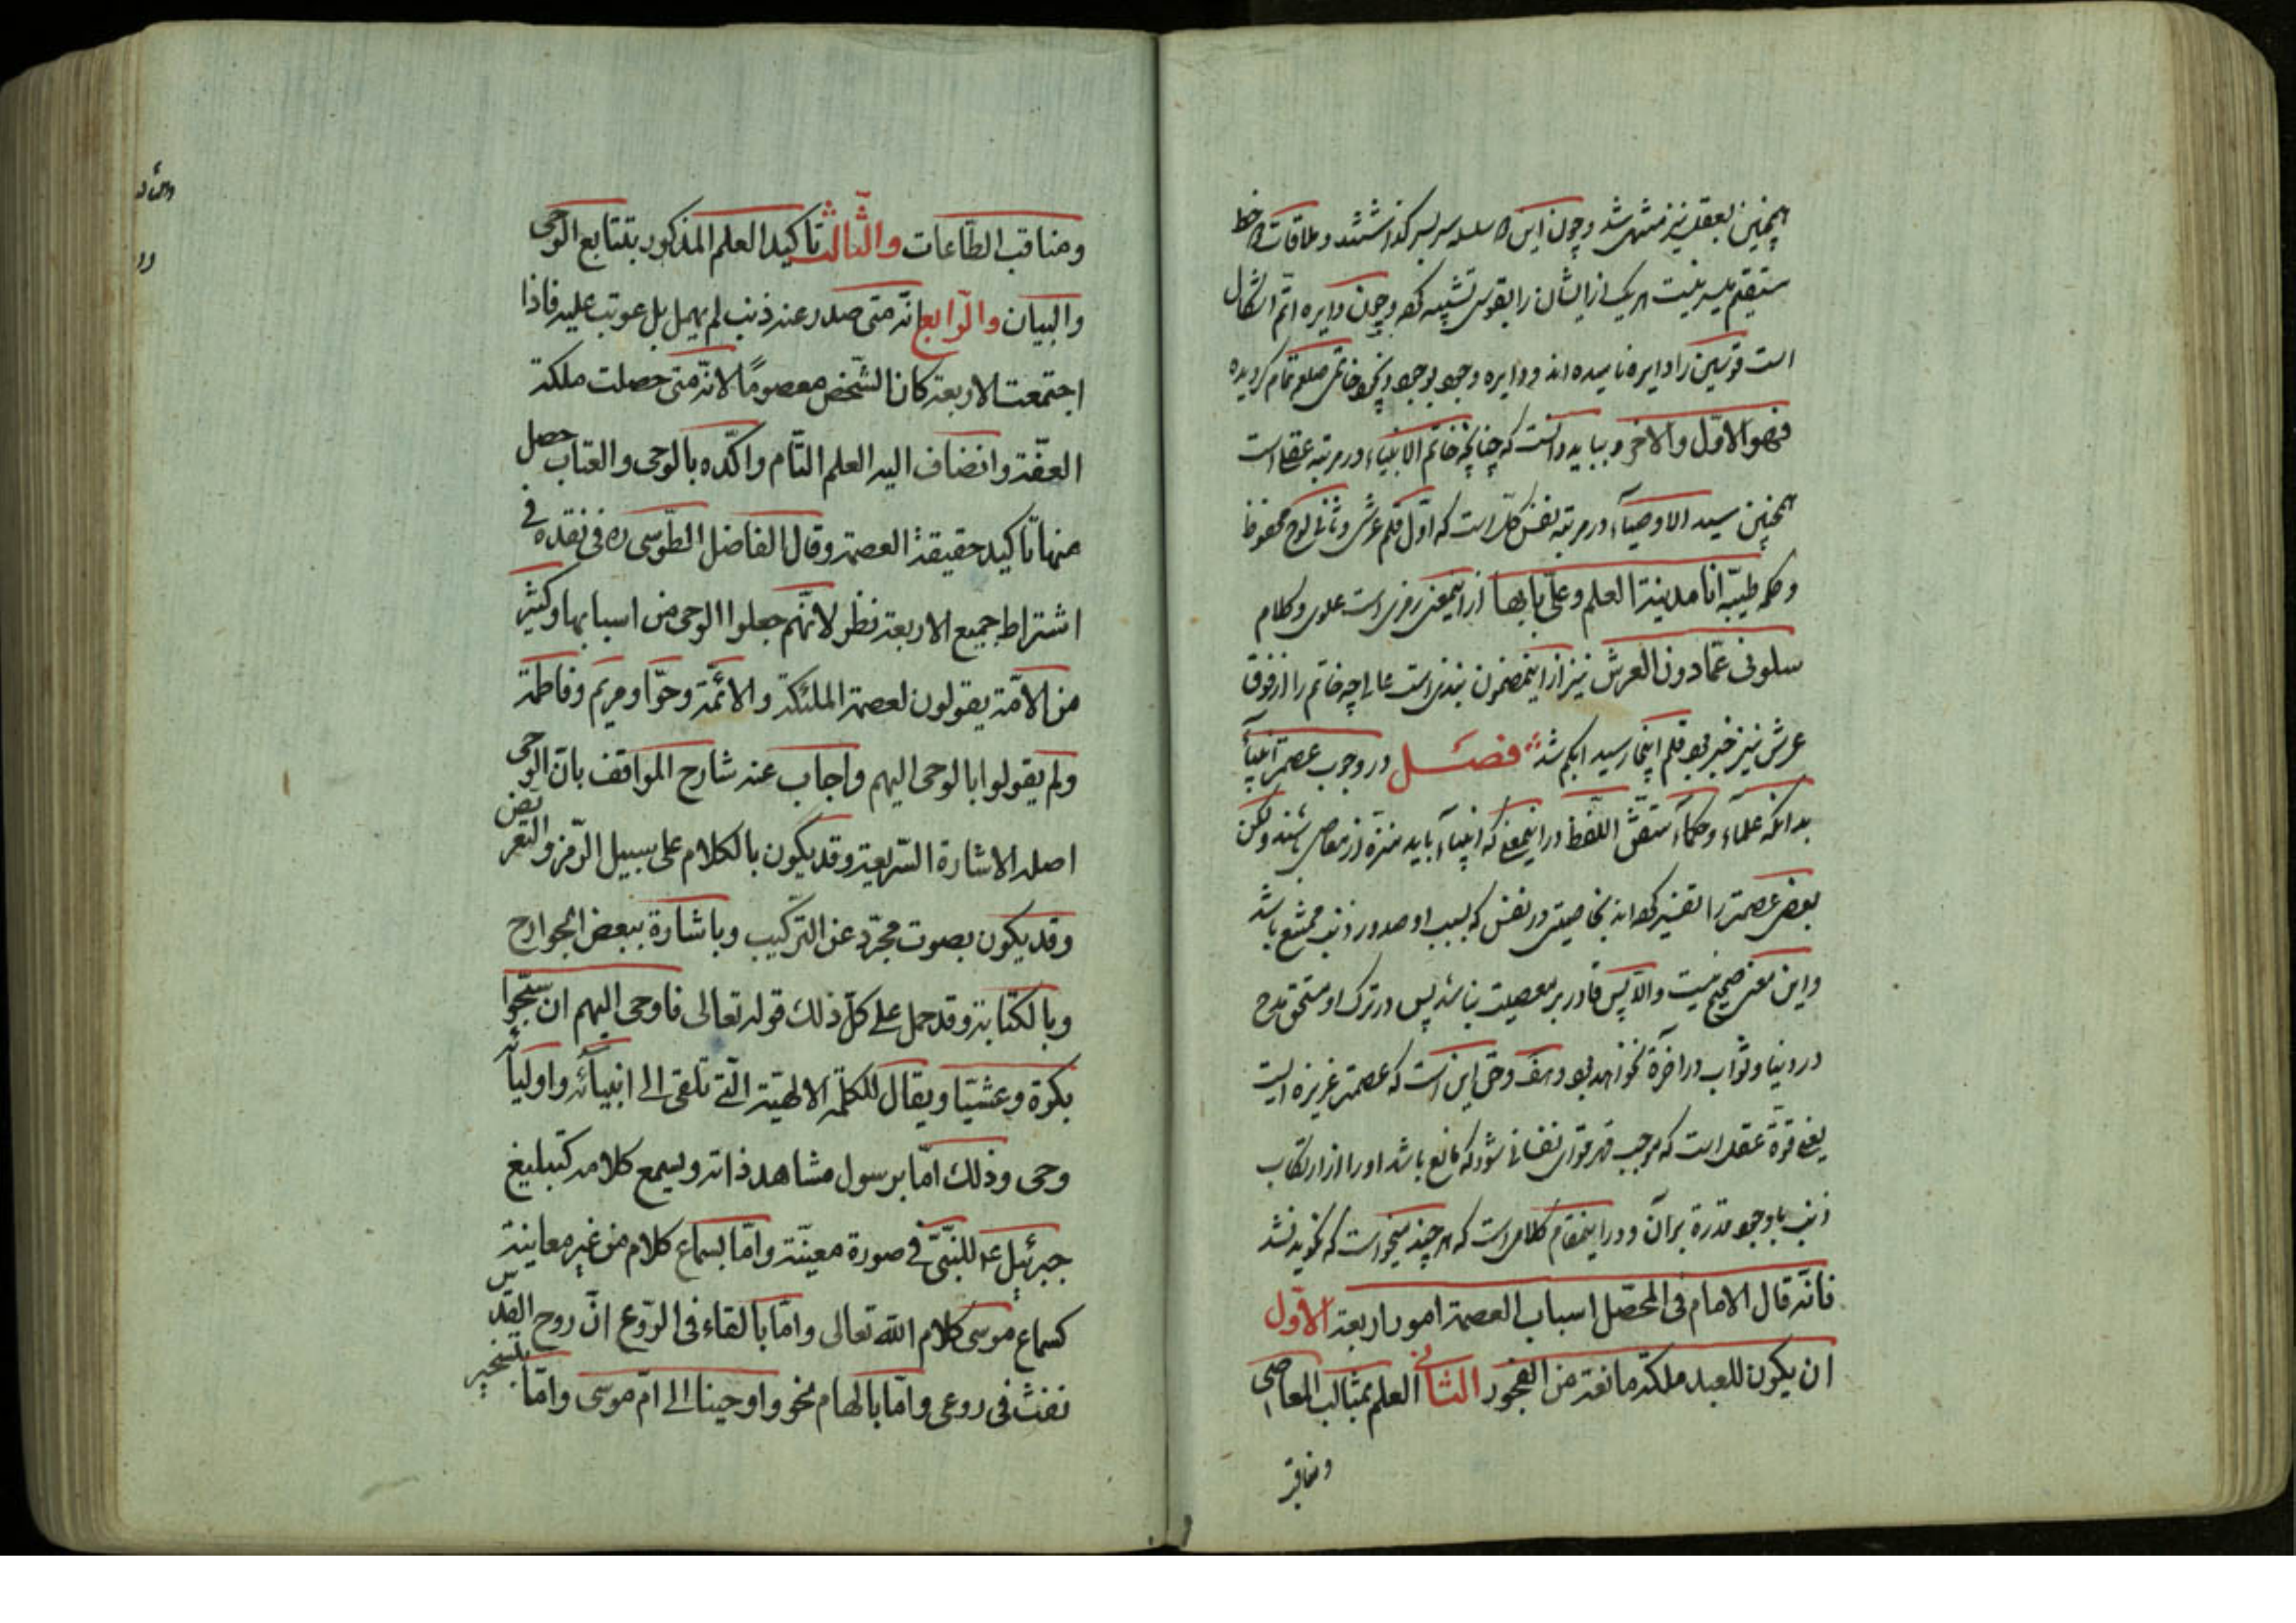 همچنین بعقل نیز منتهی شد و چون این دو سلسله سر بسر گذاشتند و ملاقات دو خط
مستقیم میسر نیست هر یک از ایشان را بقوس تشبیه کرده و چون دایره اتم اشکال
است قوسین را دایره نامیده اند و دایره وجود بوجود خاتم صلعم تمام گردیده
فهو الاوّل والاخر و بباید دانست که چنانچه خاتم الانبیاء در مرتبه عقل است
همچنین سید الاوصیاء در مرتبه نفس کل است که اوّل قلم عرش و ثانی لوح محفوظ
و کلمه طیبّه انا مدینة العلم و علیّ بابها از اینمعنی رمزی است علوی و کلام
سلونی عمّا دون العرش نیز از اینمضمون است عالی چه خاتم را از فوق
عرش نیز خبر بود قلم اینجا رسید ابکم شد فصل در وجوب عصمت انبیآء
بدانکه علمآء و حکمآء متفق اللّفظ در اینمعنی که انبیآء باید منزّه از معاصی باشند ولکن
بعضی عصمة را تفسیر کرده اند بخاصیتی در نفس که بسبب او صدور ذنب ممتنع باشد
و این معنی صحیح نیست والّا پس قادر بر معصیت نباشد پس در ترک او مستحق مدح
در دنیا و ثواب در آخرة نخواهد بود هف و حق این است که عصمة غریزه ایست
یعنی قوّة عقل است که موجب قهر قوای نفسانی شود که مانع باشد او را از ارتکاب
ذنب با وجود قدرة بر آن و در اینمقام کلامی است که هر چند میخواست که نگوید نشد
فانّه قال الامام فی المحصّل اسباب العصمة امور اربعة الاوّل
ان یکون للعبد ملکة مانعة من الفجور الثانی العلم بمثالب المعاصی
ومناقب
ومناقب الطّاعات والثّالث تأکید العلم المذکور بتتابع الوحی
والبیان والرّابع انّه متی صدر عنه ذنب لم یهمل بل عوتب علیه فاذا
اجتمعت الاربعة کان الشّخص معصومًا لانّه متی حصلت ملکة
العفّة وانضاف الیه العلم التّام واکّده بالوحی والعتاب حصل
منها تاکید حقیقة العصمة وقال الفاضل الطّوسی ره فی نقده فی
اشتراط جمیع الاربعة نظر لانّهم جعلوا الوحی من اسبابها وکثیر
من الامّة یقولون لعصمة الملئکة والائمّة وحوّا ومریم وفاطمة
ولم یقولوا بالوحی الیهم واجاب عنه شارح المواقف بانّ الوحی
اصله الاشارة السّریعة وقد یکون بالکلام علی سبیل الرّمز والتعریض
وقد یکون بصوت مجرّد عن الترکیب وباشارة ببعض الجوارح
وبالکتابة وقد حمل علی کلّ ذلک قوله تعالی فاوحی الیهم ان سبّحوا
بکرة وعشیّا ویقال للکلمة الالهیّة الّتی تلقی الی انبیآئه واولیآئه
وحی وذلک امّا برسول مشاهد ذاته ویسمع کلامه کتبلیغ
جبرئیل ع للنّبیّ فی صورة معیّنة وامّا بسماع کلام من غیر معاینة
کسماع موسی کلام اللّه تعالی وامّا بالقاء فی الرّوع انّ روح القدس
نفث فی روعی وامّا بالهام نحو واوحینا الی امّ موسی وامّا بتسخیر